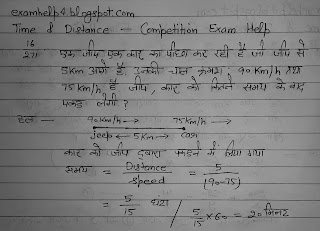 examhelp4.blogspot.com
Time & Distance — Competition Exam Help
एक जीप एक कार का पीछा कर रही है जो जीप से
5 Km आगे है, उनकी चाल क्रमशः 90 Km/h तथा
75 Km/h है जीप, कार को कितने समय के बाद
पकड़ लेगी ?
हल — 90 Km/h → 75 Km/h →
Jeep ← 5 Km → Car
कार को जीप द्वारा पकड़ने में लिया गया
समय = Distance / Speed = 5 / (90-75)
= 5/15 घण्टा / 5/15 × 60 = 20 मिनट